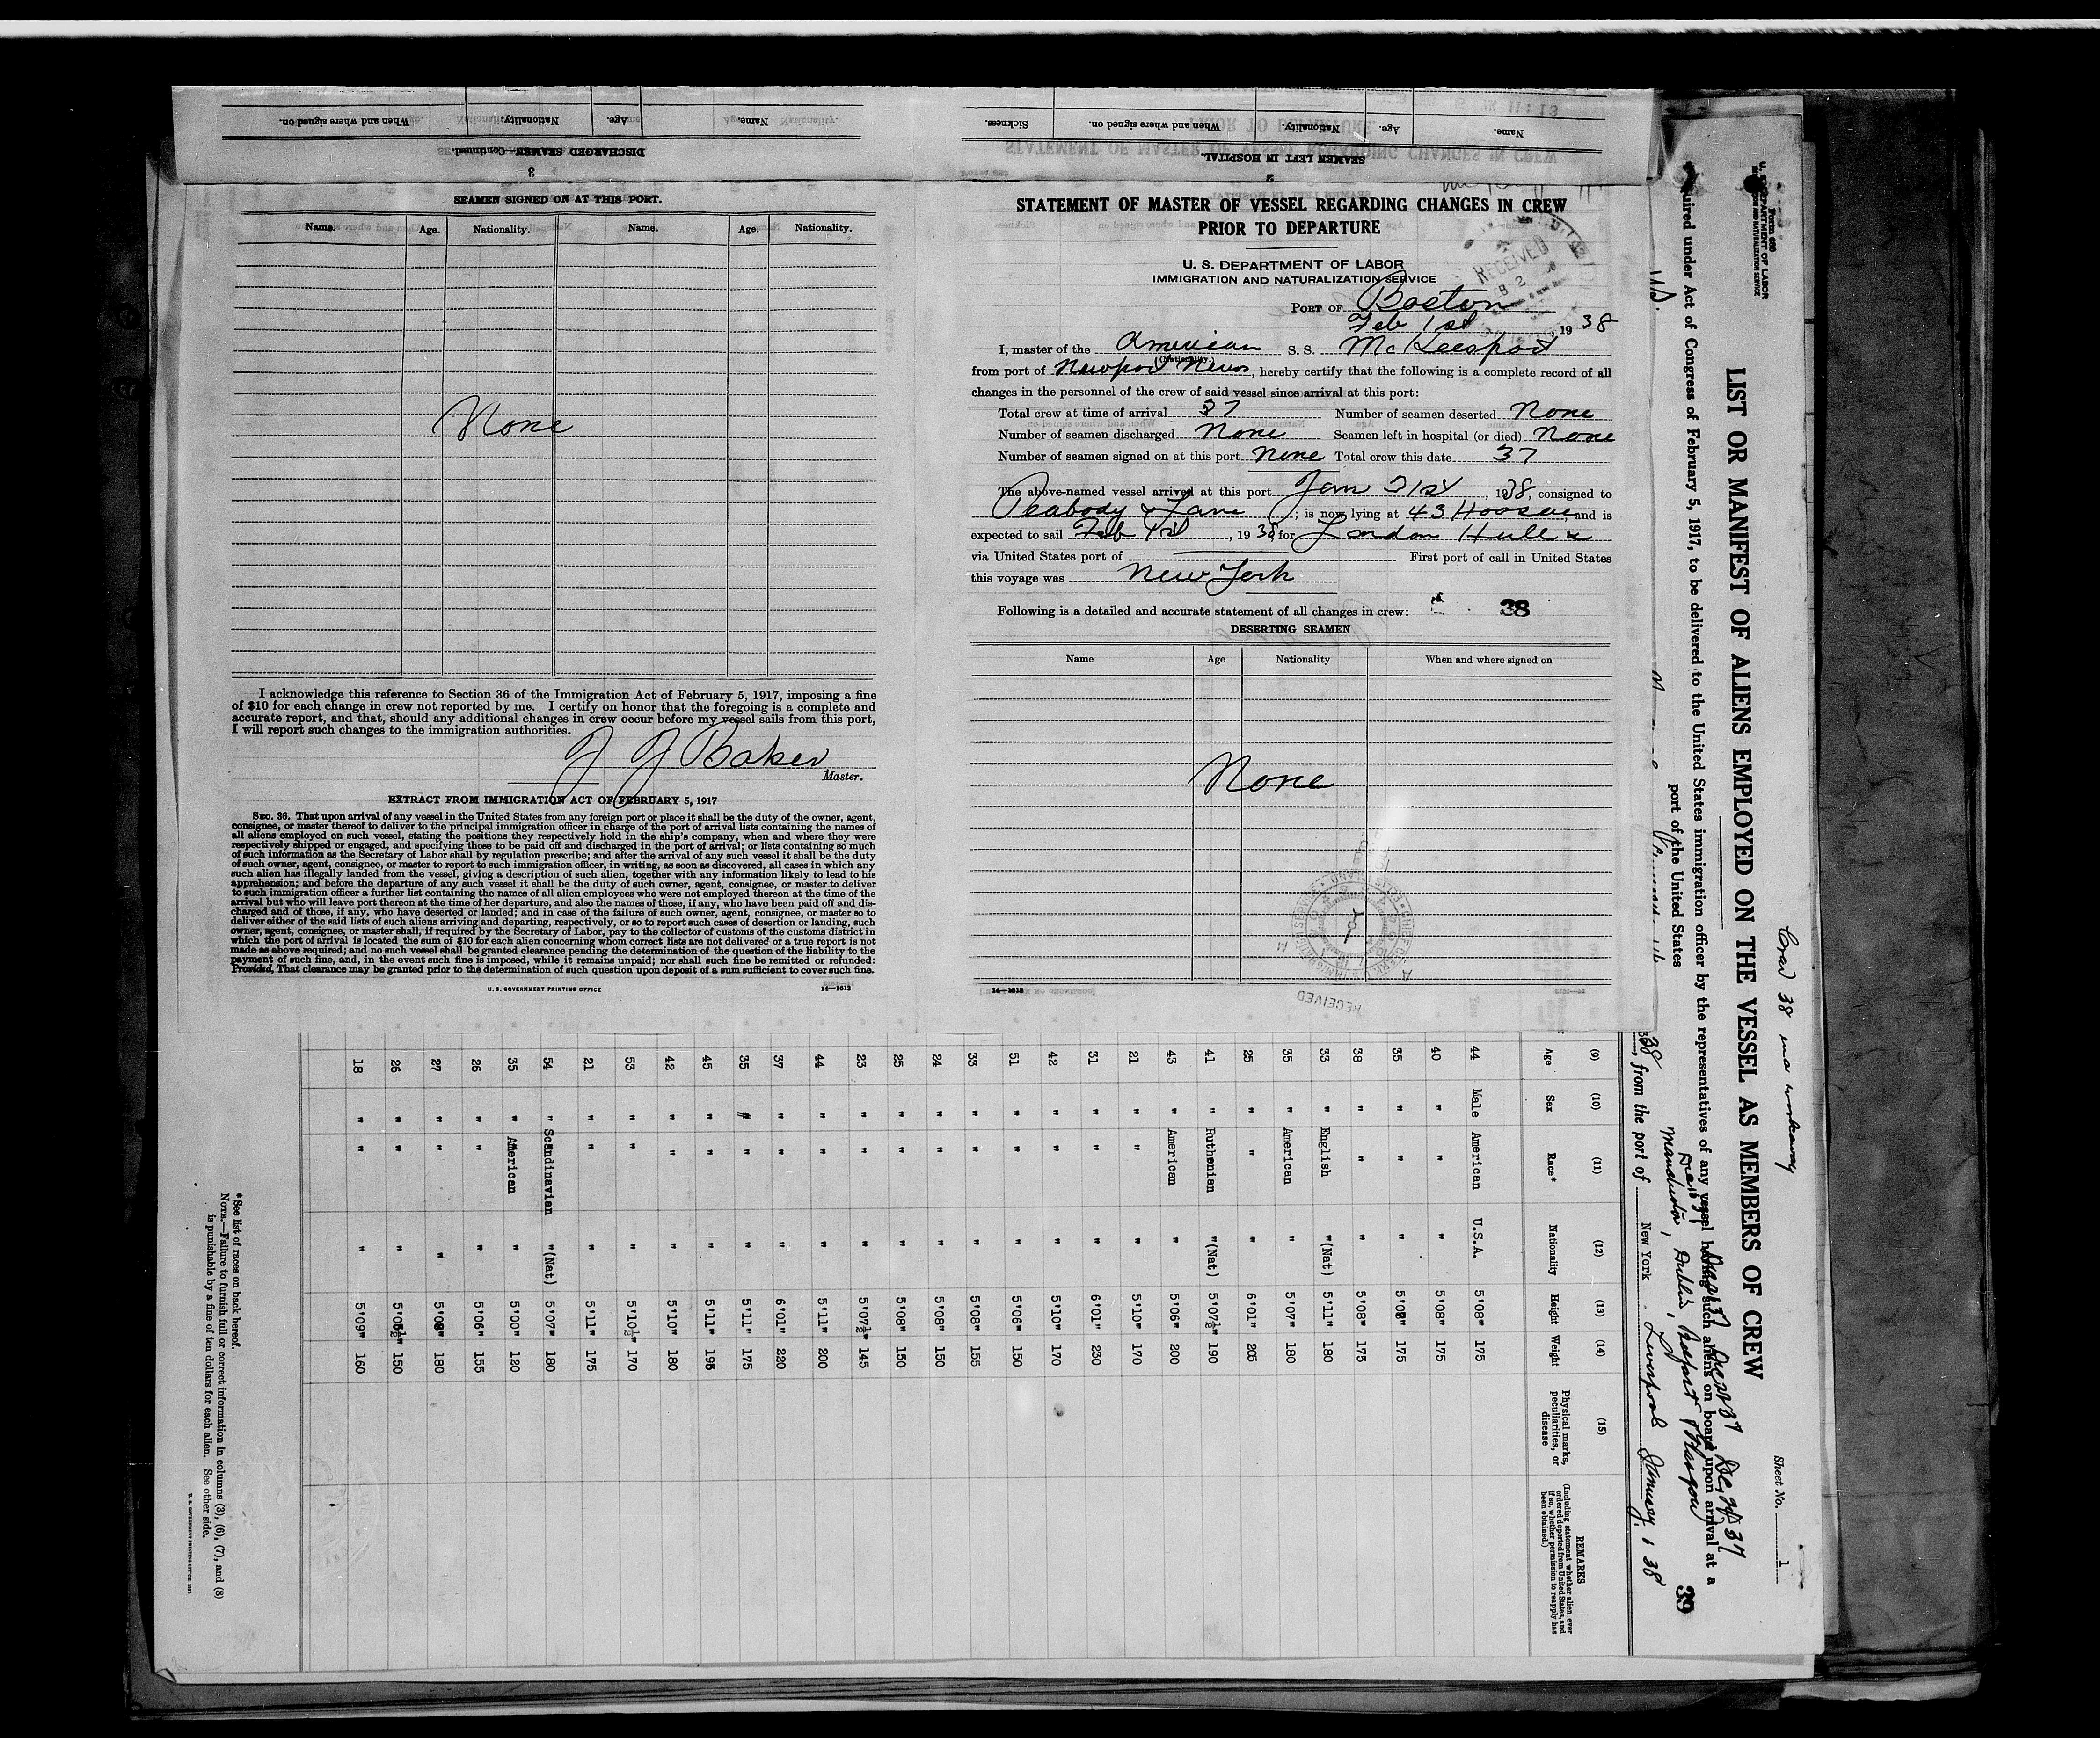 When and where signed on. Nationality. Age. Name.
DISCHARGED SEAMEN—Continued.
3
Sickness. When and where signed on. Nationality. Age. Name.
SEAMEN LEFT IN HOSPITAL.
2
SEAMEN SIGNED ON AT THIS PORT.
Name. Age. Nationality. Name. Age. Nationality.
None
I acknowledge this reference to Section 36 of the Immigration Act of February 5, 1917, imposing a fine
of $10 for each change in crew not reported by me. I certify on honor that the foregoing is a complete and
accurate report, and that, should any additional changes in crew occur before my vessel sails from this port,
I will report such changes to the immigration authorities.
J J Baker
Master.
EXTRACT FROM IMMIGRATION ACT OF FEBRUARY 5, 1917
SEC. 36. That upon arrival of any vessel in the United States from any foreign port or place it shall be the duty of the owner, agent,
consignee, or master thereof to deliver to the principal immigration officer in charge of the port of arrival lists containing the names of
all aliens employed on such vessel, stating the positions they respectively hold in the ship's company, when and where they were
respectively shipped or engaged, and specifying those to be paid off and discharged in the port of arrival; or lists containing so much
of such information as the Secretary of Labor shall by regulation prescribe; and after the arrival of any such vessel it shall be the duty
of such owner, agent, consignee, or master to report to such immigration officer, in writing, as soon as discovered, all cases in which any
such alien has illegally landed from the vessel, giving a description of such alien, together with any information likely to lead to his
apprehension; and before the departure of any such vessel it shall be the duty of such owner, agent, consignee, or master to deliver
to such immigration officer a further list containing the names of all alien employees who were not employed thereon at the time of the
arrival but who will leave port thereon at the time of her departure, and also the names of those, if any, who have been paid off and dis-
charged and of those, if any, who have deserted or landed; and in case of the failure of such owner, agent, consignee, or master so to
deliver either of the said lists of such aliens arriving and departing, respectively, or so to report such cases of desertion or landing, such
owner, agent, consignee, or master shall, if required by the Secretary of Labor, pay to the collector of customs of the customs district in
which the port of arrival is located the sum of $10 for each alien concerning whom correct lists are not delivered or a true report is not
made as above required; and no such vessel shall be granted clearance pending the determination of the question of the liability to the
payment of such fine, and, in the event such fine is imposed, while it remains unpaid; nor shall such fine be remitted or refunded:
Provided, That clearance may be granted prior to the determination of such question upon deposit of a sum sufficient to cover such fine.
U. S. GOVERNMENT PRINTING OFFICE 14—1613
STATEMENT OF MASTER OF VESSEL REGARDING CHANGES IN CREW
PRIOR TO DEPARTURE
U. S. DEPARTMENT OF LABOR
IMMIGRATION AND NATURALIZATION SERVICE
RECEIVED
PORT OF Boston
Feb 1st, 1938
I, master of the American S. S. McKeesport
(Nationality.)
from port of Newport News, hereby certify that the following is a complete record of all
changes in the personnel of the crew of said vessel since arrival at this port:
Total crew at time of arrival 37 Number of seamen deserted None
Number of seamen discharged None Seamen left in hospital (or died) None
Number of seamen signed on at this port None Total crew this date 37
The above-named vessel arrived at this port Jan 31st, 1938, consigned to
Peabody & Lane, is now lying at 43 Hoosac, and is
expected to sail Feb 1st, 1938 for London Hull &
via United States port of First port of call in United States
this voyage was New York
Following is a detailed and accurate statement of all changes in crew: 38
DESERTING SEAMEN
Name Age Nationality When and where signed on
None
RECEIVED
14—1613
Form 680
U. S. DEPARTMENT OF LABOR
IMMIGRATION AND NATURALIZATION SERVICE
Sheet No. 1
LIST OR MANIFEST OF ALIENS EMPLOYED ON THE VESSEL AS MEMBERS OF CREW
Required under Act of Congress of February 5, 1917, to be delivered to the United States immigration officer by the representatives of any vessel having such aliens on board upon arrival at a
port of the United States
39
Manchester, Dublin, Belfast Glasgow
38, from the port of New York Liverpool January 1 38
(9) (10) (11) (12) (13) (14) (15)
Age Sex Race* Nationality Height Weight Physical marks, peculiarities, or disease REMARKS
(Including statement whether alien ever ordered deported from United States, and if so, whether permission to reapply has been obtained.)
44 Male American U.S.A. 5'08" 175
40 " " " 5'08" 175
35 " " " 5'08" 175
38 " " " 5'08" 175
33 " English "(Nat) 5'11" 180
35 " American " 5'07" 180
25 " " " 6'01" 205
41 " Ruthenian "(Nat) 5'07½" 190
43 " American " 5'06" 200
21 " " " 5'10" 170
31 " " " 6'01" 230
42 " " " 5'10" 170
51 " " " 5'06" 150
33 " " " 5'08" 155
24 " " " 5'08" 150
25 " " " 5'08" 150
23 " " " 5'07½" 145
44 " " " 5'11" 200
37 " " " 6'01" 220
35 " " " 5'11" 175
45 " " " 5'11" 195
42 " " " 5'10" 180
53 " " " 5'10½" 170
21 " " " 5'11" 175
54 " Scandinavian "(Nat) 5'07" 180
35 " American " 5'00" 120
26 " " " 5'06" 155
27 " " " 5'08" 180
26 " " " 5'05½" 150
18 " " " 5'09" 160
*See list of races on back hereof.
NOTE.—Failure to furnish full or correct information in columns (3), (6), (7), and (8)
is punishable by a fine of ten dollars for each alien. See other side.